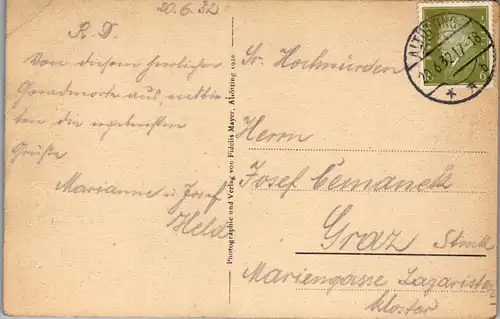 20.6.32
R. D.
Von diesem herrlichen
Gnadenorte aus, entbie-
ten die ergebensten
Grüße
Marianne u. Josef
Held
Photographie und Verlag von Fidelis Mayer, Altötting 1928
ALTÖTTING
20.6.32.17-18
Sr. Hochwürden
Herrn
Josef Cemanek
Graz Stmk
Mariengasse Lazaristen
kloster